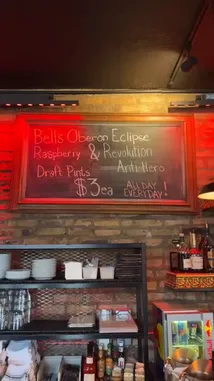 Bells Oberon Eclipse
Raspberry & Revolution
Draft Pints Anti Hero
$3ea ALL DAY !
EVERYDAY